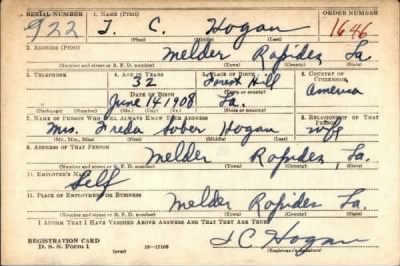 SERIAL NUMBER 1. NAME (Print) ORDER NUMBER
922 J. C. Hogan 1646
(First) (Middle) (Last)
2. ADDRESS (Print)
Melder Rapides La
(Number and street or R. F. D. number) (Town) (County) (State)
3. TELEPHONE 4. AGE IN YEARS 5. PLACE OF BIRTH 6. COUNTRY OF CITIZENSHIP
32 Forest Hill America
DATE OF BIRTH
June 14 1908 La.
(Exchange) (Number) (Mo.) (Day) (Yr.) (State or country)
7. NAME OF PERSON WHO WILL ALWAYS KNOW YOUR ADDRESS 8. RELATIONSHIP OF THAT PERSON
Mrs. Freda Sober Hogan wife
(Mr., Mrs., Miss) (First) (Middle) (Last)
9. ADDRESS OF THAT PERSON
Melder Rapides, La.
(Number and street or R. F. D. number) (Town) (County) (State)
10. EMPLOYER'S NAME
Self
11. PLACE OF EMPLOYMENT OR BUSINESS
Melder Rapides La.
(Number and street or R. F. D. number) (Town) (County) (State)
I AFFIRM THAT I HAVE VERIFIED ABOVE ANSWERS AND THAT THEY ARE TRUE.
REGISTRATION CARD
D. S. S. Form 1 (over) 16-17105 J C Hogan
(Registrant's signature)